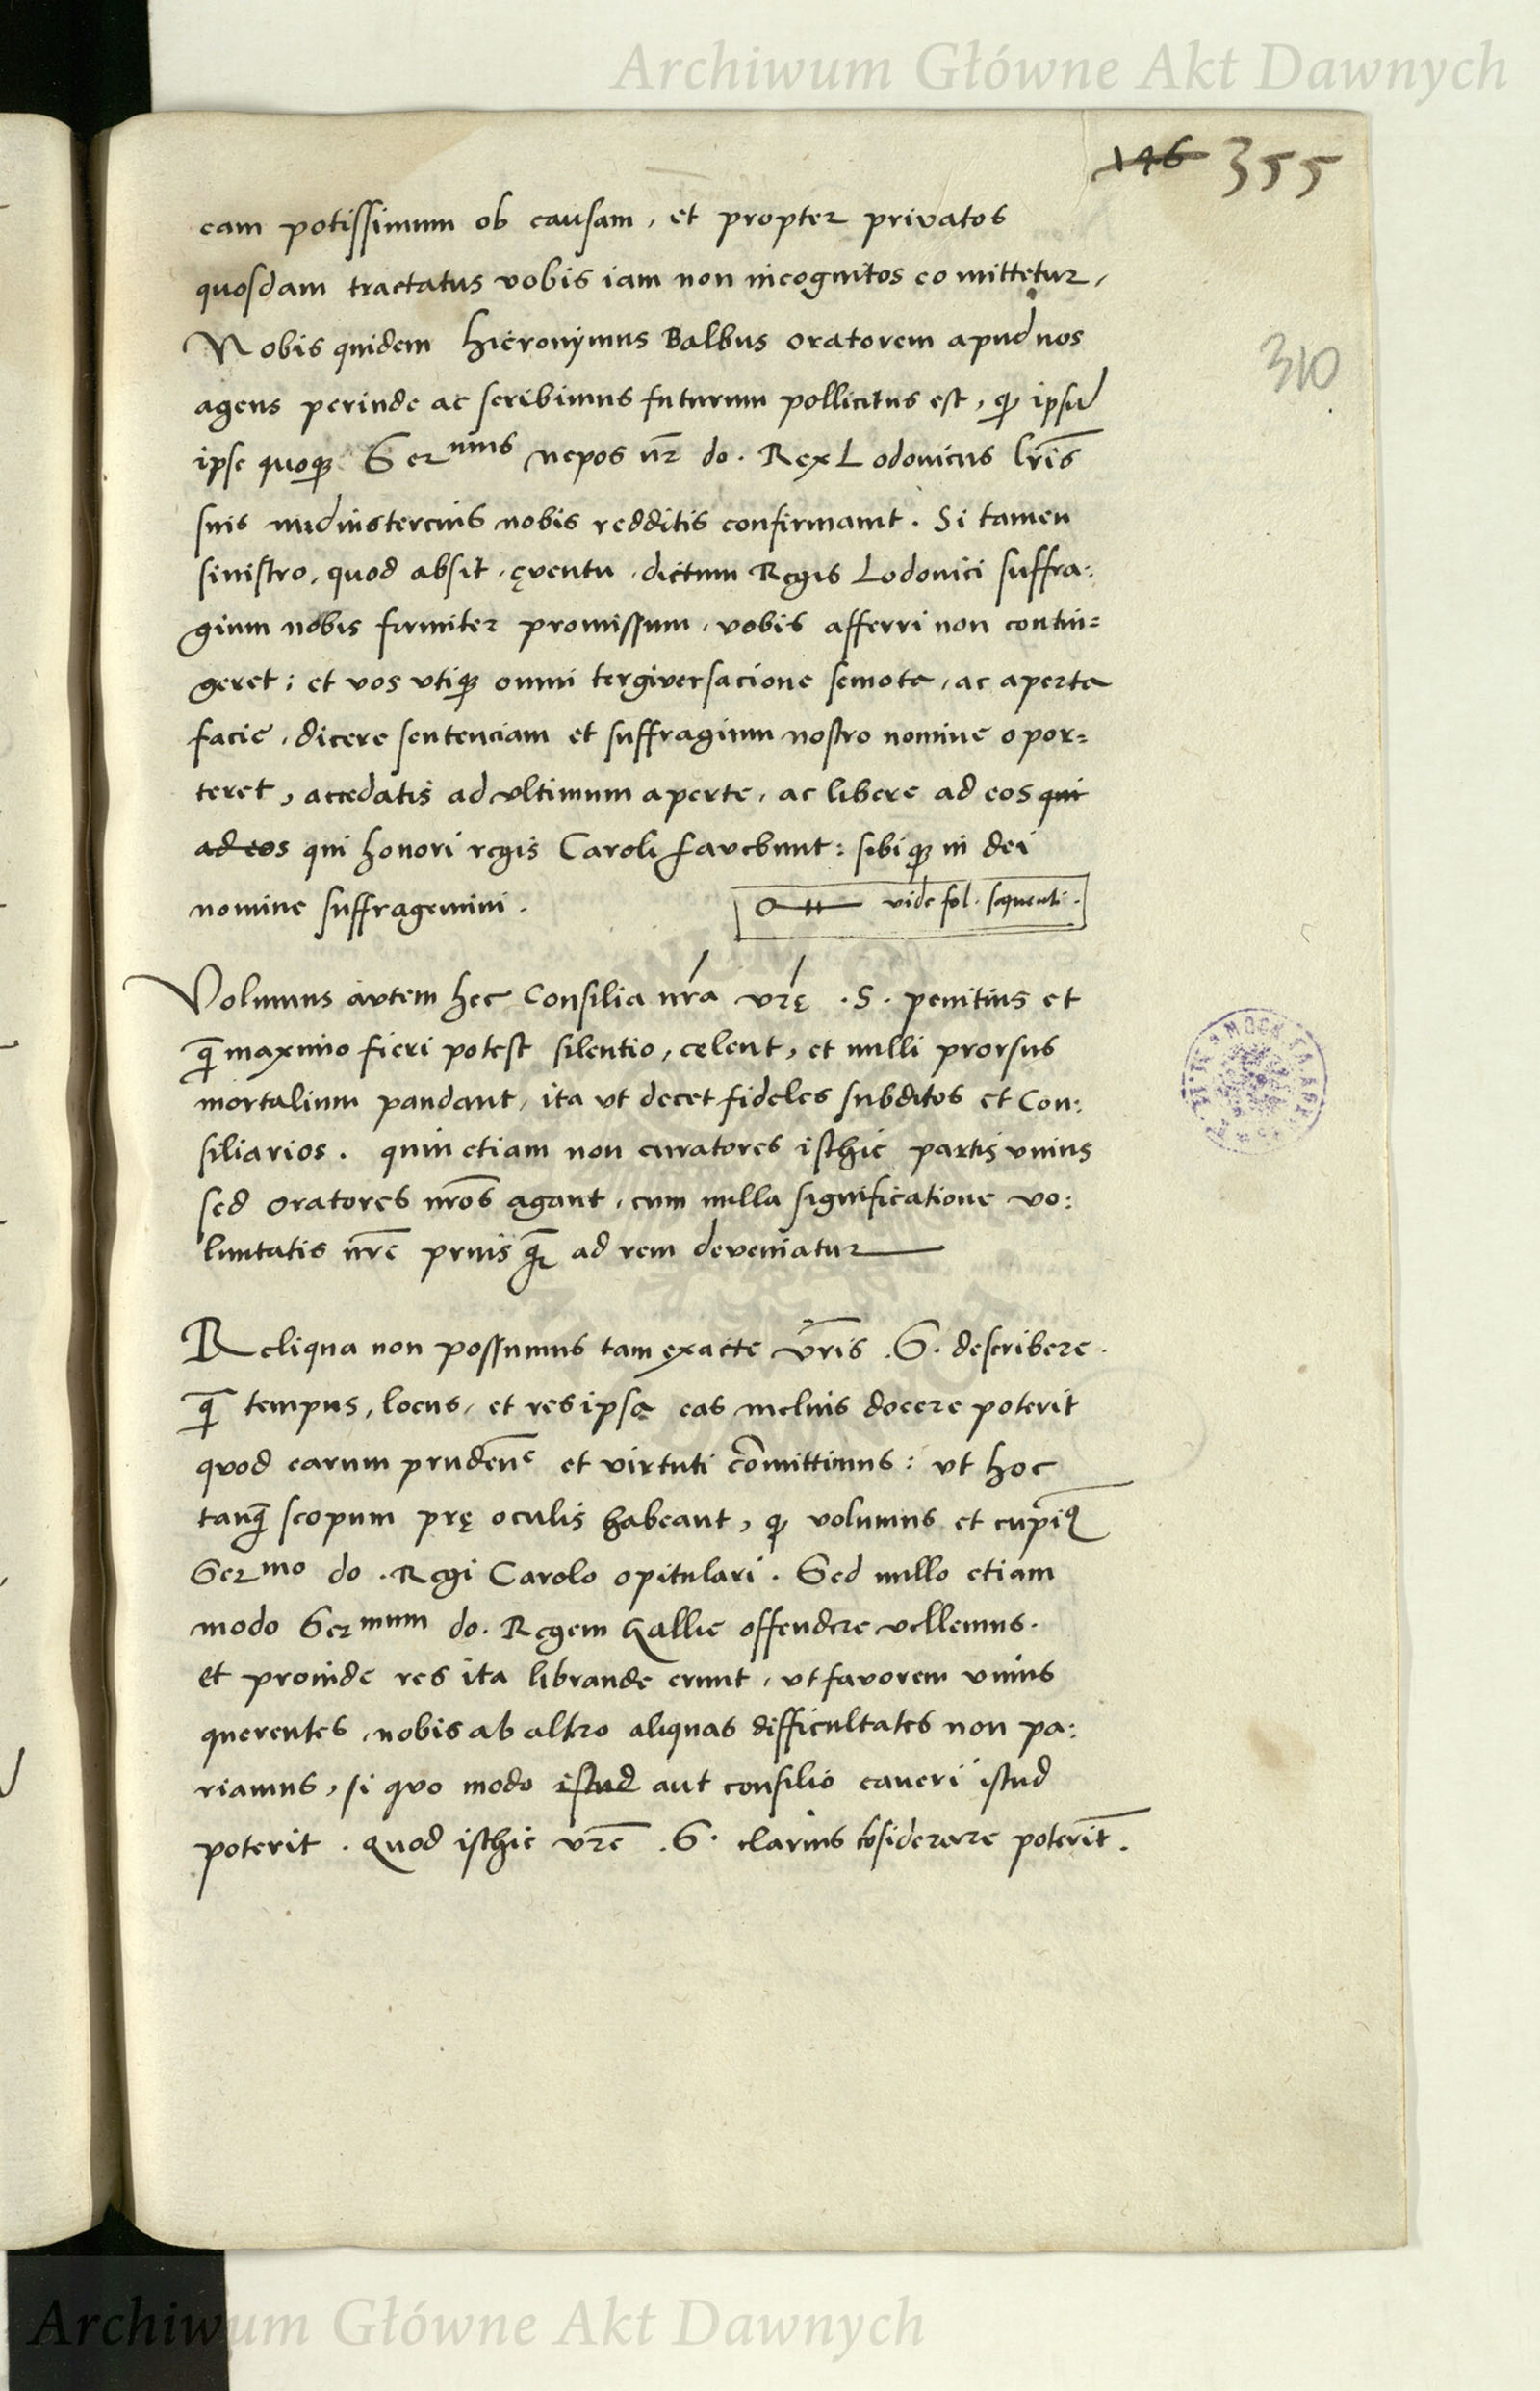 Archiwum Główne Akt Dawnych
146 355
eam potissimum ob causam, et propter privatos
quosdam tractatus vobis iam non incognitos eo mittetur,
310
Nobis quidem hieronymus Balbus oratorem apud nos
agens perinde ac scribimus futurum pollicitus est, qȝ ipsū
ipse quoqȝ Serᵐᵘˢ nepos nr̄ do. Rex Lodovicus lr̄is
suis nudiustercius nobis redditis confirmavit. Si tamen
sinistro, quod absit, ęventu, dictum Regis Lodovici suffra:
gium nobis firmiter promissum, vobis afferri non contin=
geret: et vos vtiqȝ omni tergiversacione semota, ac aperta
facie, dicere sentenciam et suffragium nostro nomine opor=
teret, accedatis ad vltimum aperte, ac libere ad eos qui
ad eos qui honori regis Caroli favebunt: sibiqȝ in dei
nomine suffragemini.
vide fol. sequenti.
Volumus avtem hec Consilia nr̄a vr̄ę .S. penitius et
q̄ maximo fieri potest silentio, celent, et nulli prorsus
mortalium pandant, ita vt decet fideles subditos et Con:
siliarios. quin etiam non curatores isthic partis vnius
sed oratores nr̄os agant, cum nulla significatione vo:
luntatis nr̄e prius q̄ ad rem deveniatur
Reliqua non possumus tam exacte vr̄is .S. describere.
q̄ tempus, locus, et res ipsa eas melius docere poterit
quod earum prudenc̄ et virtuti com̄ittimus: vt hoc
tanq̄ scopum prę oculis habeant, qȝ volumus et cupimꝰ
Serᵐᵒ do. Regi Carolo opitulari. Sed nullo etiam
modo Serᵐᵘᵐ do. Regem Gallie offendere vellemus.
et proinde res ita librande erunt, vt favorem vnius
querentes, nobis ab altro aliquas difficultates non pa:
riamus, si quo modo istud aut consilio caveri istud
poterit. quod isthic vr̄e .S. clarius cōsiderare poterīt.
Archiwum Główne Akt Dawnych